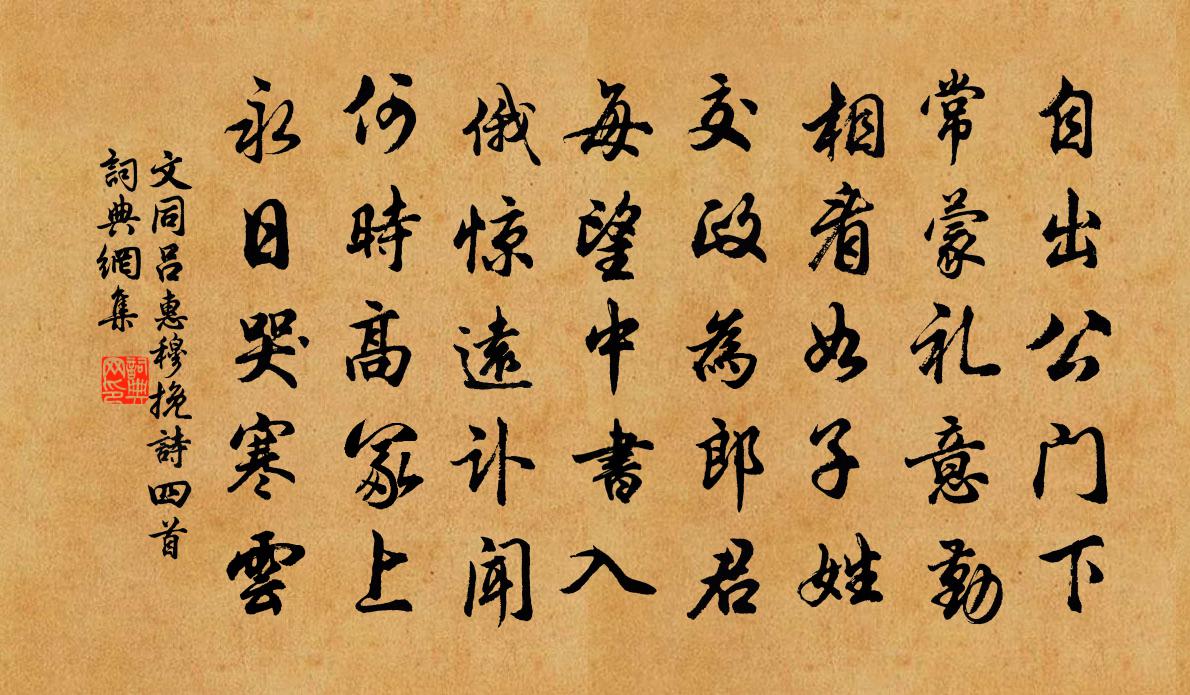 自出公门下
常蒙礼意勤
相看如子姓
交政為郎君
每望中書入
俄惊遠讣闻
何時高冢上
永日哭寒雲
文同吕惠穆挽詩四首
詞典網集
詞典网印